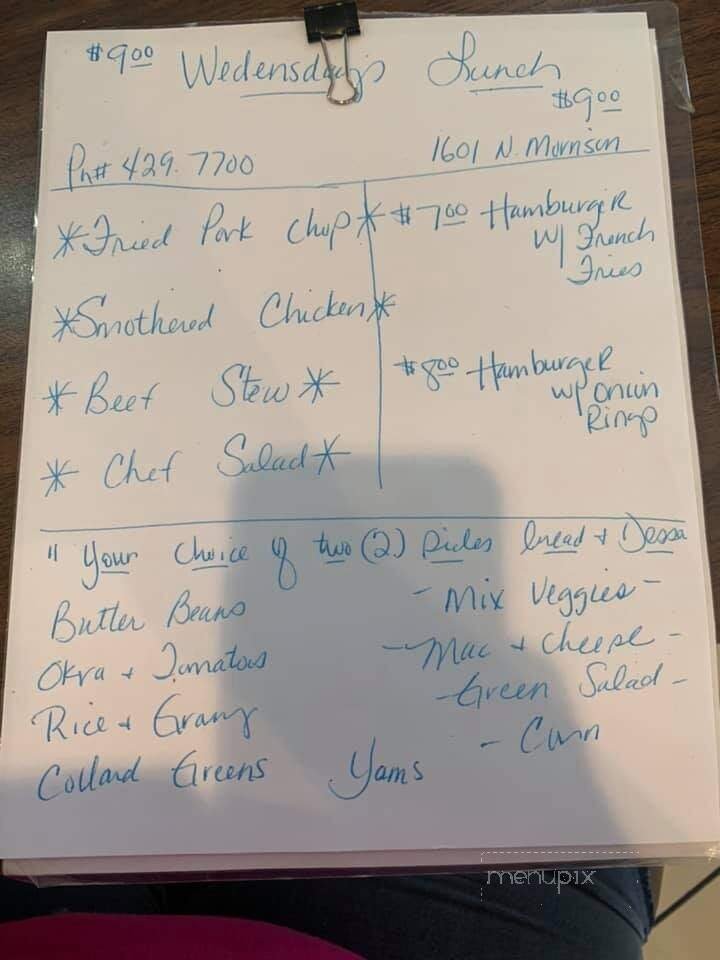 $9.00 Wedensday's Lunch
$9.00
Ph# 429.7700
1601 N. Morrison
*Fried Pork Chop*
*Smothered Chicken*
*Beef Stew*
*Chef Salad*
$7.00 HamburgeR
w/ French
Fries
$8.00 HamburgeR
w/ Onion
Rings
" Your Choice of two (2) Sides bread + Dessa
Butter Beans
Okra + Tomatoes
Rice + Gravy
Collard Greens
Yams
- Mix Veggies -
- Mac + Cheese -
- Green Salad -
- Corn
menupix